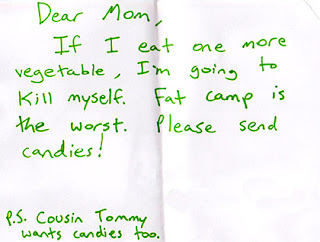 Dear Mom,
If I eat one more
vegetable, I'm going to
Kill myself. Fat camp is
the worst. Please send
candies!
P.S. Cousin Tommy
wants candies too.